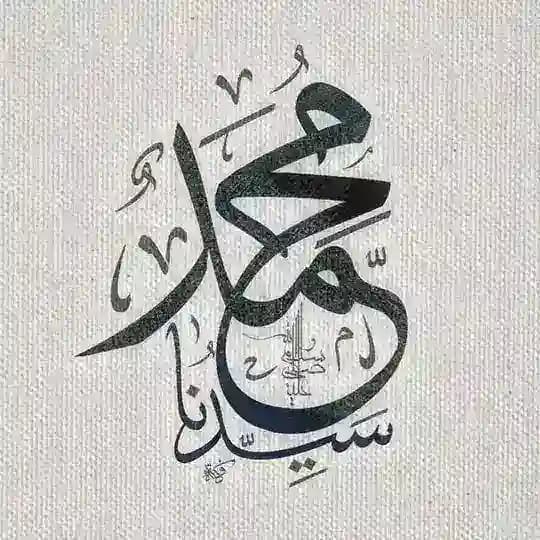 سَيِّدُنَا
مُحَمَّدٌ
صلى الله عليه وسلم